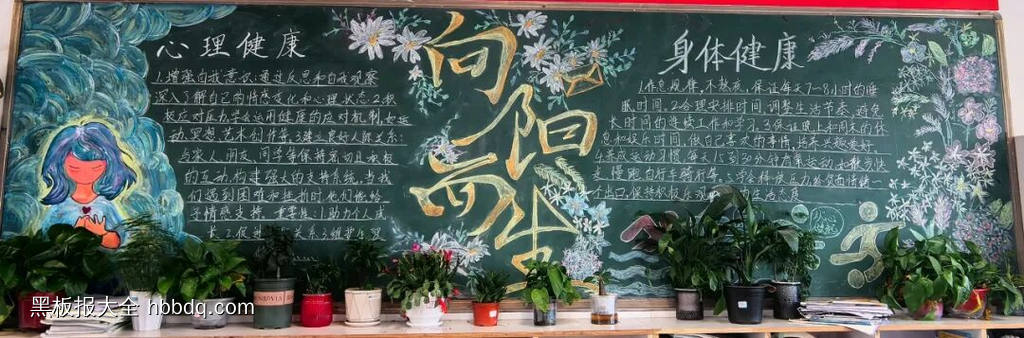 心理健康
1.增强自我意识:通过反思和自我观察
深入了解自己的情感变化和心理状态.2.积
极应对压力:学会运用健康的应对机制,如运
动.冥想.艺术创作等.3.建立良好人际关系:
与家人.朋友.同学等保持密切且积极
的互动,构建强大的支持系统.当我
们遇到困难和挫折时,他们能给
予情感支持
向阳而生
身体健康
1.作息规律,不熬夜,保证每天7-8小时的睡
眠时间.2.合理安排时间,调整生活节奏,避免
长时间的连续工作和学习.3.保证晚上和周末的休
息和娱乐时间,做自己喜欢的事情,培养兴趣爱好
养成运动习惯,每天15到30分钟有氧运动,比如快
走,慢跑,自行车骑行等.学会释放压力
黑板报大全 hbbdq.com